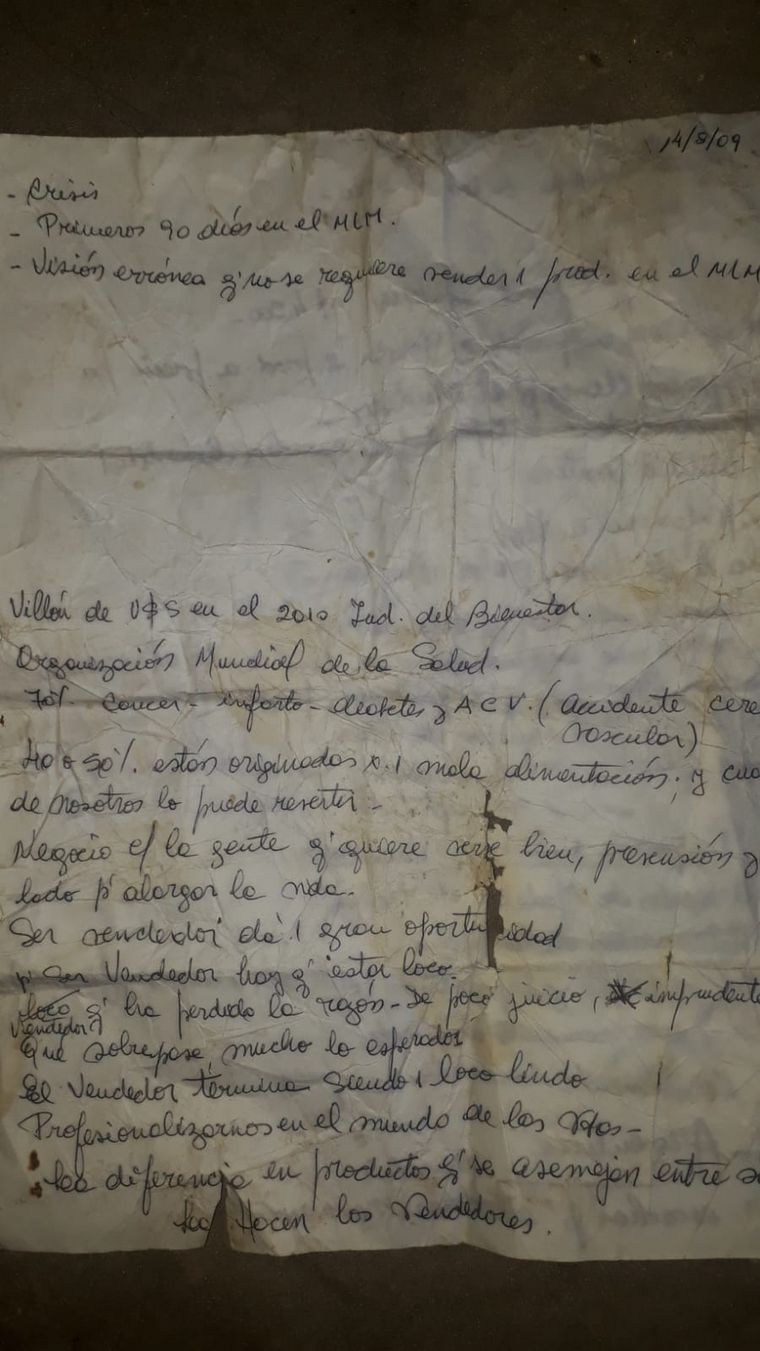 14/8/09
- Crisis
- Primeros 90 días en el MLM.
- Visión errónea q' no se requiere vender 1 prod. en el MLM
Villón de U$S en el 2010 Ind. del Bienestar.
Organización Mundial de la Salud.
70% Cancer - infarto - diabetes y ACV. (accidente cere
vascular)
40 o 50%. están originados x 1 mala alimentación; y cua
de nosotros lo puede revertir -
Negocio c/ la gente q' quiere verse bien, presensión y
lado p' alargar la vida.
Ser vendedor dá 1 gran oportunidad
p' Ser Vendedor hay q' estar loco.
loco q' ha perdido la razón - De poco juicio, imprudente
Vendedor?
Que sobrepase mucho lo esperador
El Vendedor termina siendo 1 loco lindo
Profesionalizarnos en el mundo de las Vtas -
La diferencia en productos q' se asemejan entre s
La Hacen los Vendedores.